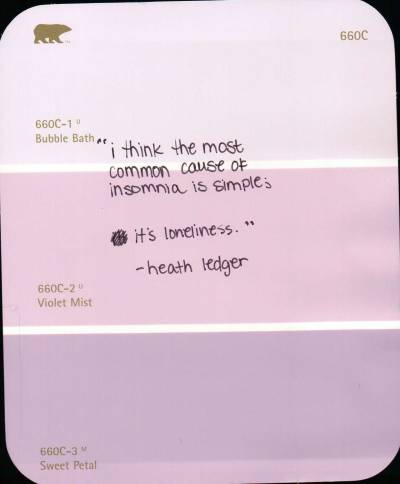 660C
660C-1 U
Bubble Bath
"i think the most
common cause of
insomnia is simple;
it's loneliness."
-heath ledger
660C-2 U
Violet Mist
660C-3 M
Sweet Petal